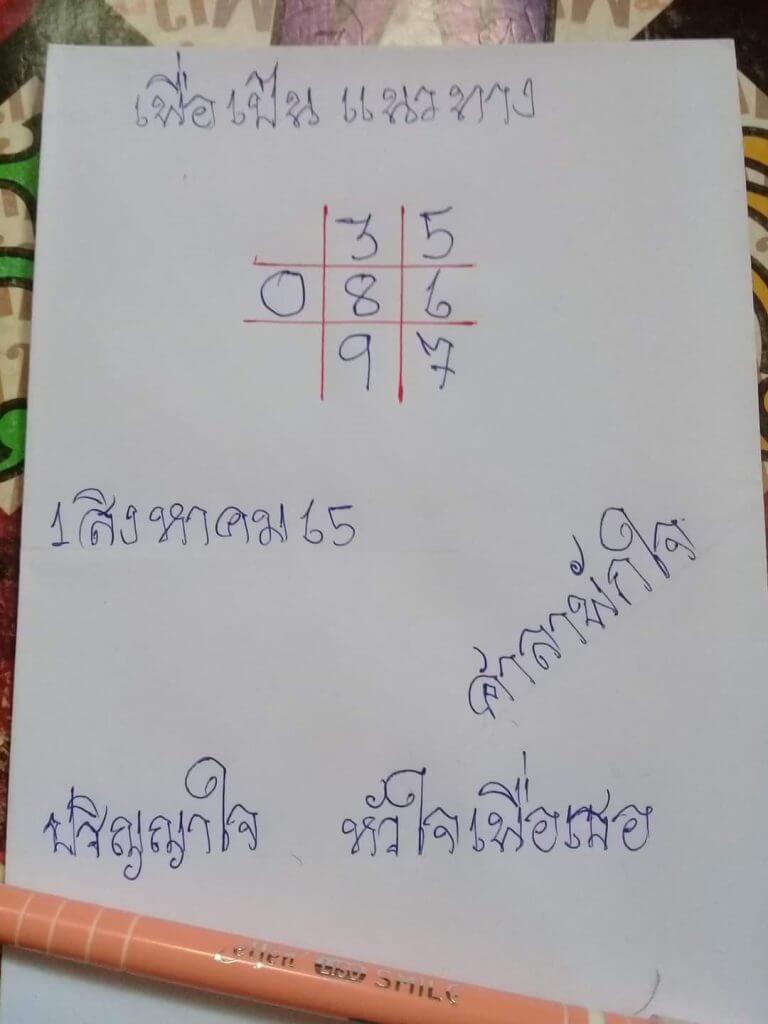 เพื่อเป็นแนวทาง
3 5
0 8 6
9 7
1 สิงหาคม 65
ศาลาพักใจ
ปริญญาใจ หัวใจเพื่อเธอ
SMILE